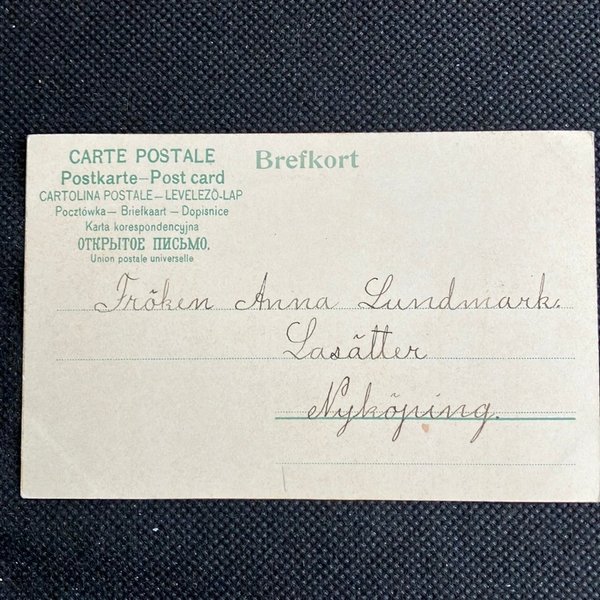 CARTE POSTALE
Brefkort
Postkarte–Post card
CARTOLINA POSTALE — LEVELEZÖ-LAP
Pocztówka — Briefkaart — Dopisnice
Karta korespondencyjna
ОТКРЫТОЕ ПИСЬМО.
Union postale universelle
Fröken Anna Lundmark.
Lasätter
Nyköping.